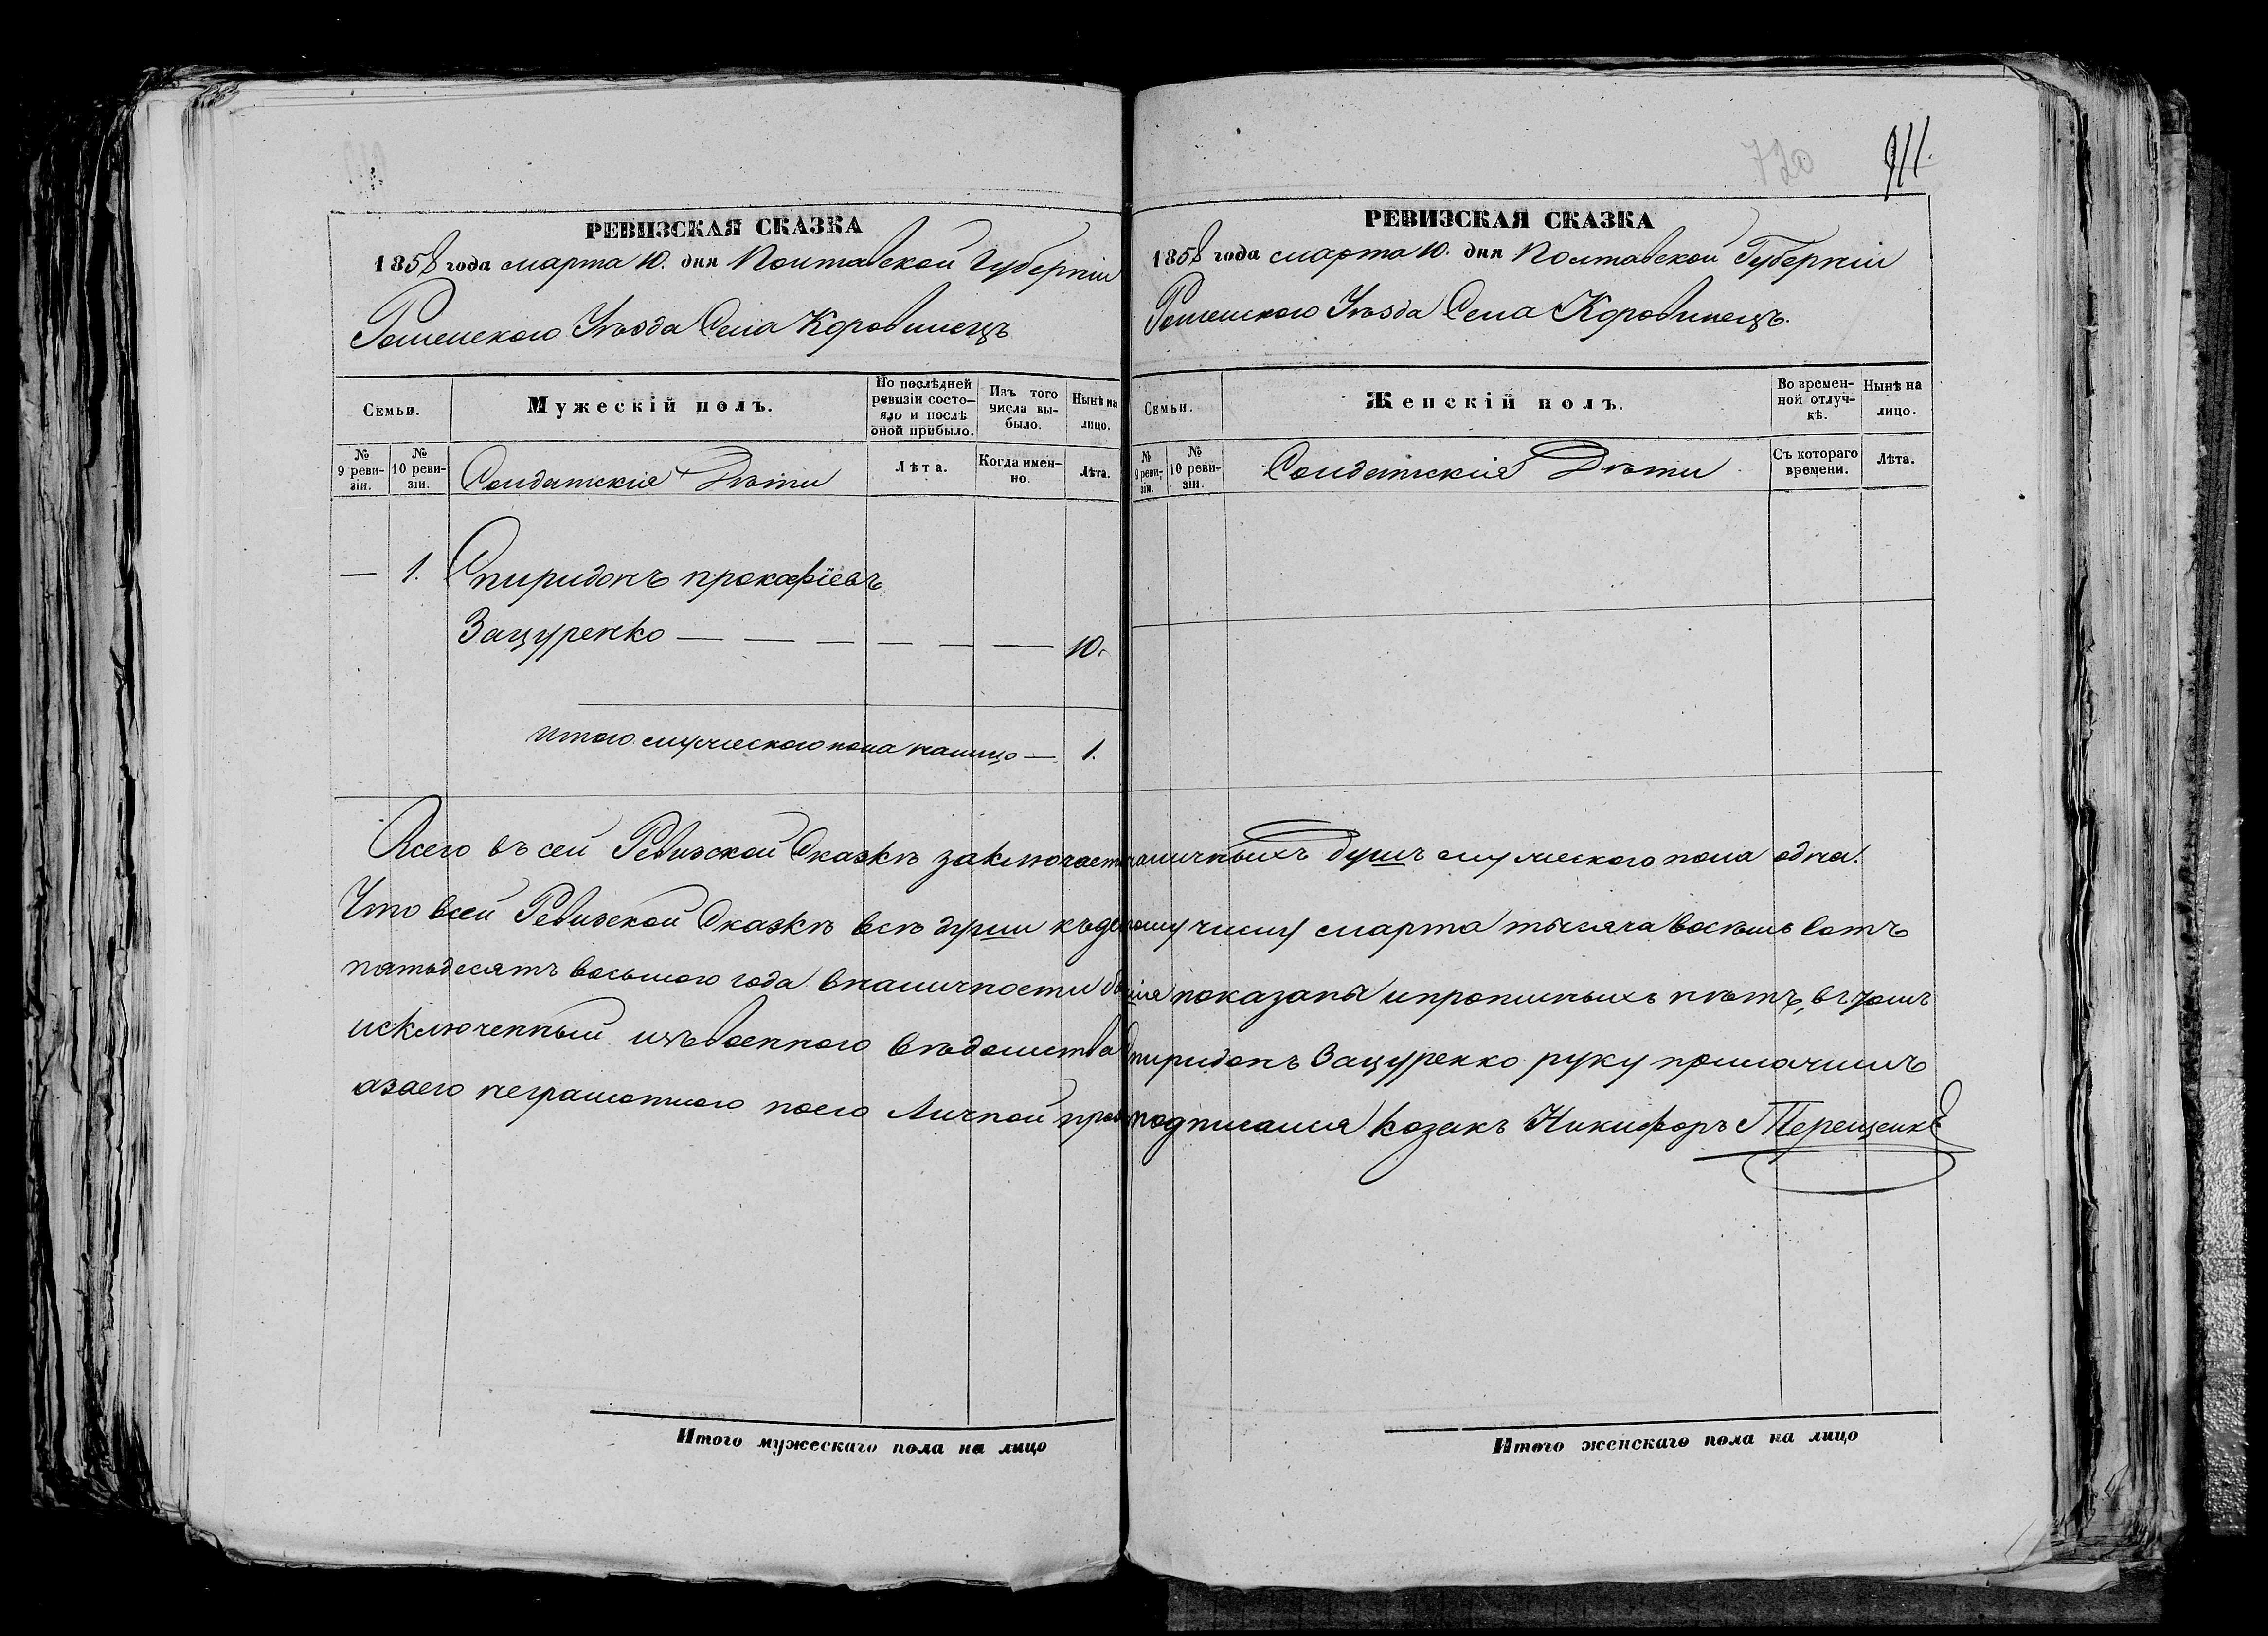 720
911.
РЕВИЗСКАЯ СКАЗКА
1858 года марта 10. дня Полтавской Губернiи
Роменского Уѣзда Села Коровинецъ
Семьи.
Мужескiй полъ.
По послѣдней ревизiи состояло и послѣ оной прибыло.
Изъ того числа выбыло.
Нынѣ на лицо.
№ 9 ревизiи.
№ 10 ревизiи.
Солдатскiя Дѣти
Лѣта.
Когда именно.
Лѣта.
— 1. Спиридонъ прокофiевъ
Зацуренко — — — — — — 10.
итого мужеского пола налицо — 1.
Итого мужескаго пола на лицо
РЕВИЗСКАЯ СКАЗКА
1858 года марта 10. дня Полтавской Губернiи
Роменского Уѣзда Села Коровинецъ.
Семьи.
Женскiй полъ.
Во временной отлучкѣ.
Нынѣ на лицо.
№ 9 ревизiи.
№ 10 ревизiи.
Солдатскiя Дѣти
Съ котораго времени.
Лѣта.
Всего въ сей Ревизской Сказкѣ заключает наличныхъ душъ мужеского пола одна.
Что всей Ревизской Сказкѣ всѣ души къ числу марта тысяча восемь сотъ
пятьдесятъ восьмого года вналичности показаны ипрописныхъ нѣтъ, втомъ
исключенный изъ военного вѣдомства Спиридонъ Зацуренко руку приложилъ
азаего неграмотного поего Личной подписался Козакъ Никифоръ Терещенко
Итого женскаго пола на лицо